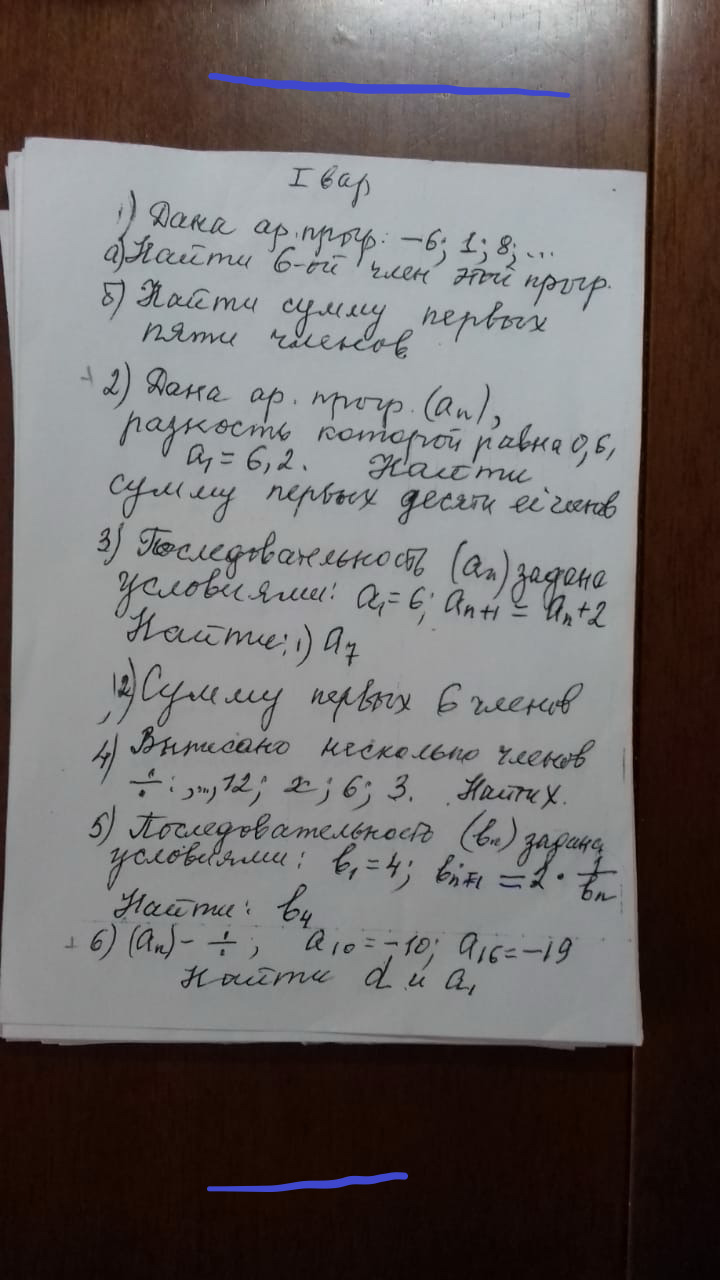 I вар
1) Дана ар. прогр: -6; 1; 8; ...
а) Найти 6-ой член этой прогр.
б) Найти сумму первых
пяти членов
2) Дана ар. прогр. (aₙ),
разность которой равна 0,6,
a₁ = 6,2. Найти
сумму первых десяти её членов
3) Последовательность (aₙ) задана
условиями: a₁ = 6; aₙ₊₁ = aₙ + 2
Найти: 1) a₇
2) Сумму первых 6 членов
4) Выписано несколько членов
÷: ,..., 12; x; 6; 3. Найти x.
5) Последовательность (bₙ) задана
условиями: b₁ = 4; bₙ₊₁ = 2 · 1/bₙ
Найти: b₄
6) (aₙ) - ÷; a₁₀ = -10; a₁₆ = -19
Найти d и a₁